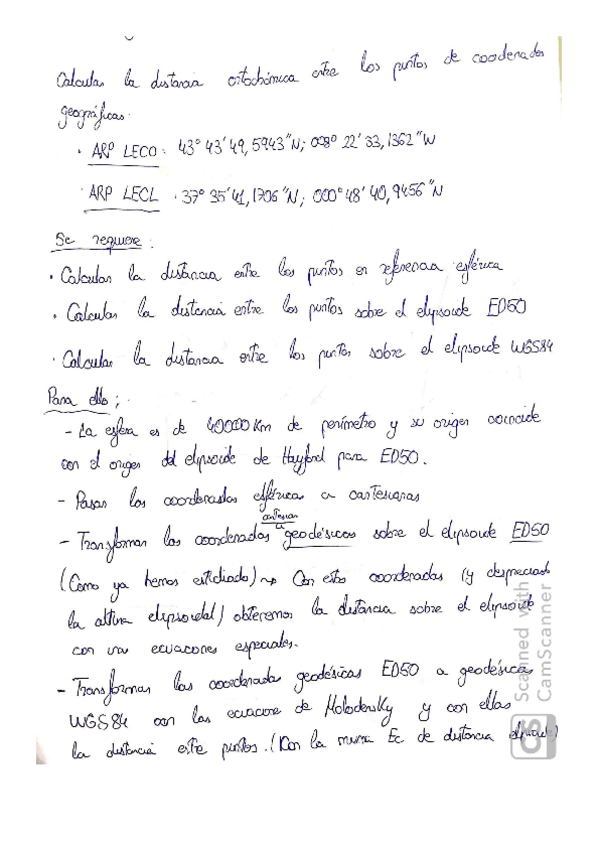 Calcular la distancia ortodrómica entre los puntos de coordenadas
geográficas.
· ARP LECO: 43° 43' 49,5943"N; 008° 22' 33,1362"W
· ARP LECL · 37° 35' 41,1706"N; 000° 48' 40,9456"N
Se requiere:
· Calcular la distancia entre los puntos en referencia esférica
· Calcular la distancia entre los puntos sobre el elipsoide ED50
· Calcular la distancia entre los puntos sobre el elipsoide WGS84
Para ello;
- La esfera es de 40000 Km de perímetro y su origen coincide
con el origen del elipsoide de Hayford para ED50.
- Pasar las coordenadas esférica a cartesianas
- Transformar las coordenadas cartesian a geodésicas sobre el elipsoide ED50
(Como ya hemos estudiado) → Con estas coordenadas (y despreciando
la altura elipsoidal) obtenemos la distancia sobre el elipsoide
con una ecuaciones especiales.
- Transformar las coordenada geodésicas ED50 a geodésicas
WGS84 con las ecuacione de Molodensky y con ellas
la distancia entre puntos. (Con la misma Ec de distancia elipsoide)
Scanned with
CamScanner
CS